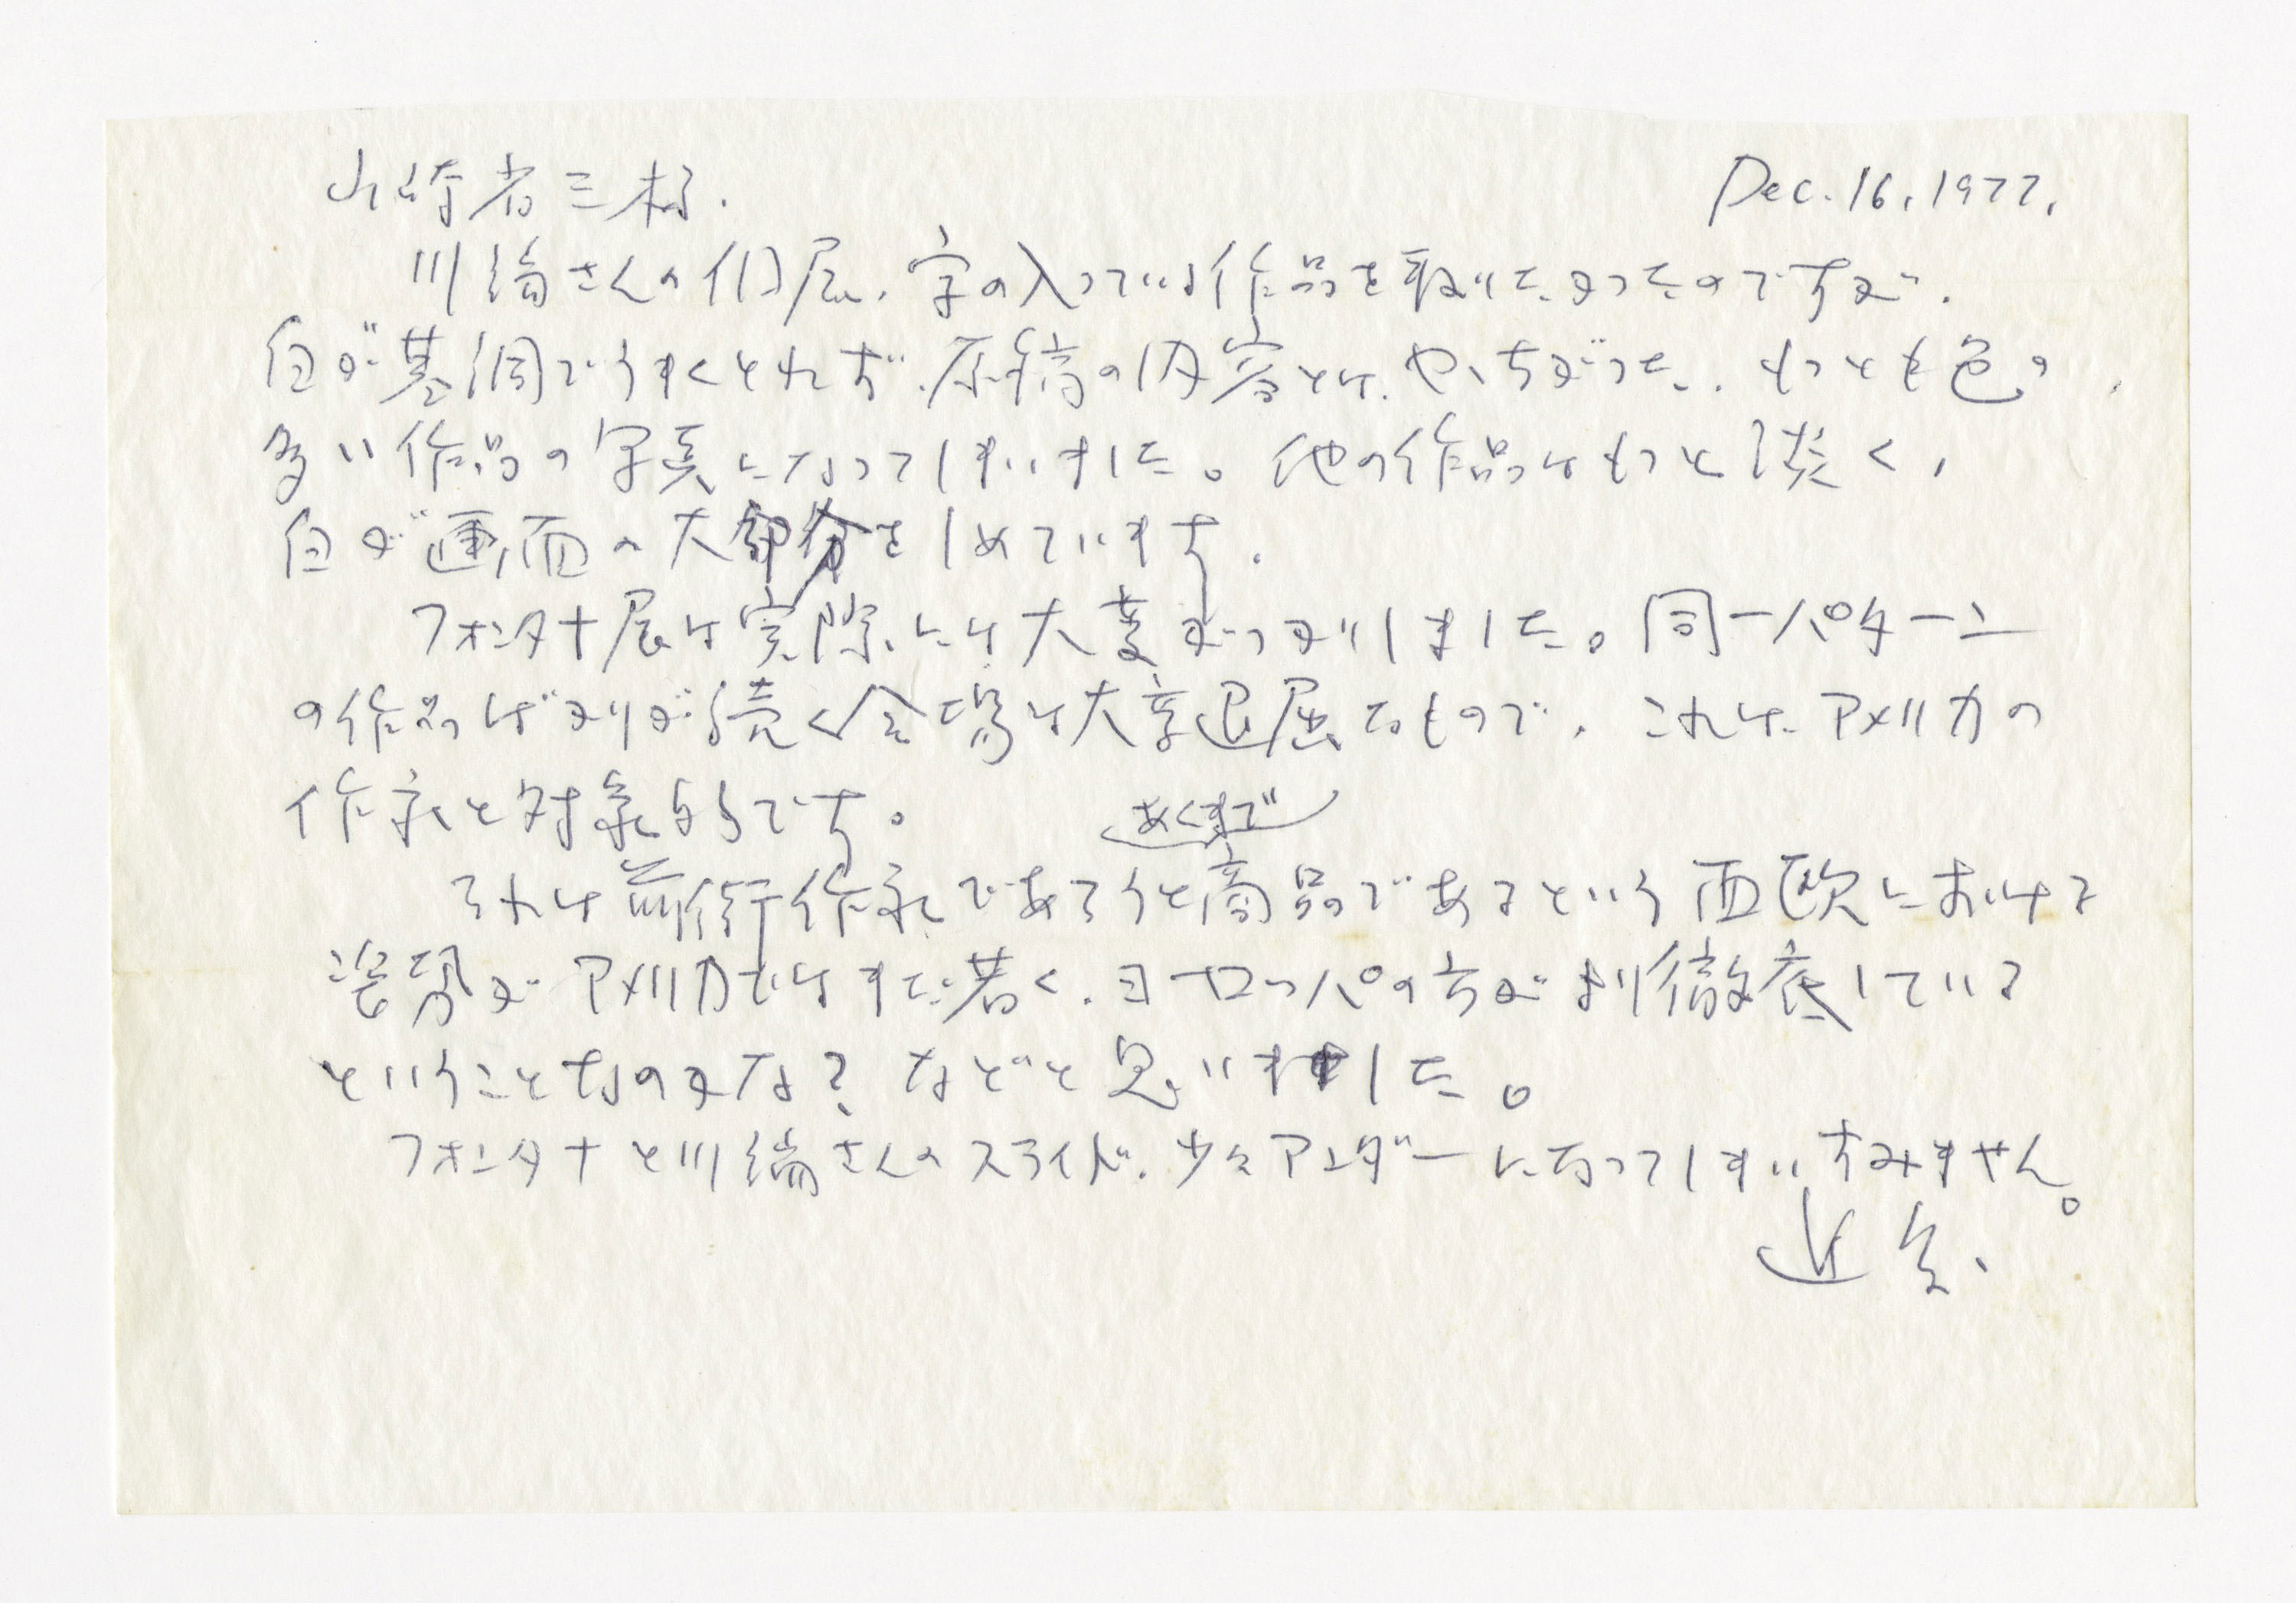 山崎省三様. Dec. 16, 1977.
川端さんの個展、字の入っている作品を取りたかったのですが、
白が基調でうまくとれず、原稿の内容とは、やゝちがった、もっとも色の
多い作品の写真になってしまいました。他の作品はもっと淡く、
白が画面の大部分をしめています.
フォンタナ展は実際には大変がっかりしました。同一パターン
の作品ばかりが続く会場は大変退屈なもので、これはアメリカの
作家と対象的です。
それは前衛作家であろうとあくまで商品であるという西欧における
姿勢がアメリカではまだ若く、ヨーロッパの方がより徹底している
ということなのかな? などと思いました。
フォンタナと川端さんのスライド、少々アンダーになってしまいすみません。